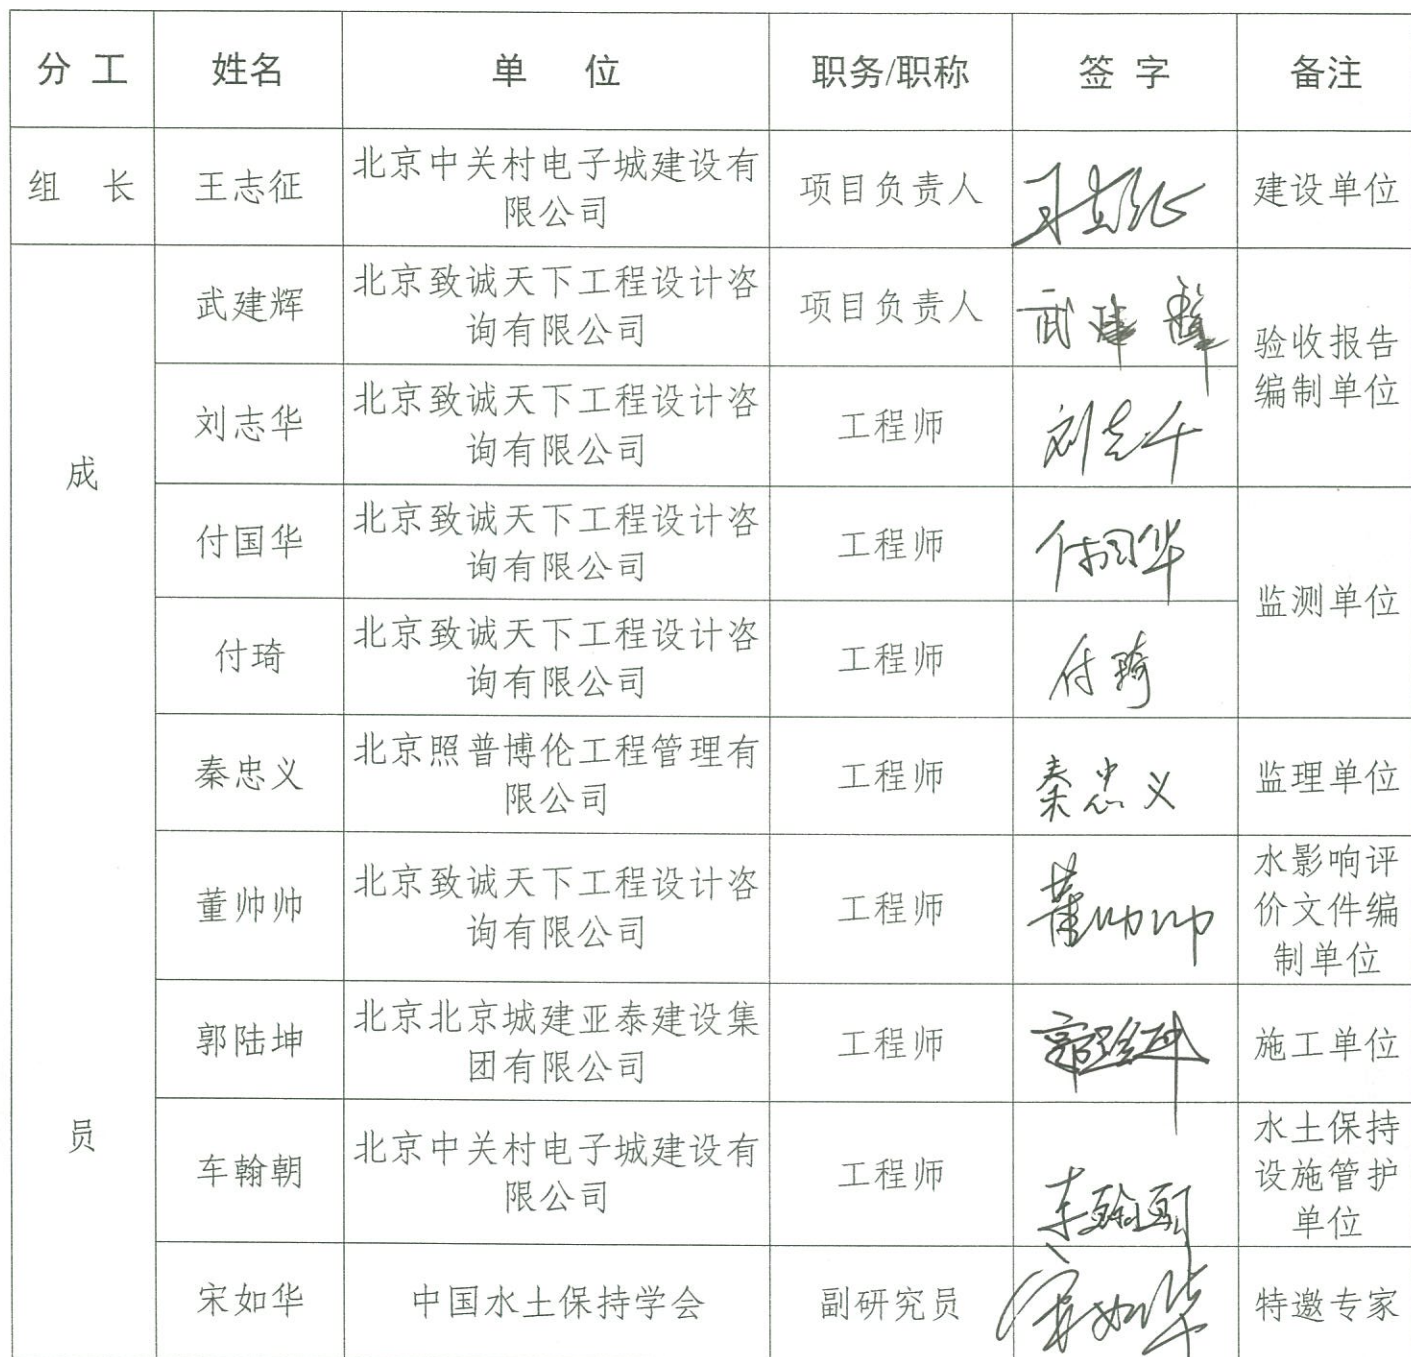 分 工 姓名 单 位 职务/职称 签 字 备注
组 长 王志征 北京中关村电子城建设有
限公司 项目负责人 王志征 建设单位
成
员
武建辉 北京致诚天下工程设计咨
询有限公司 项目负责人 武建辉 验收报告
编制单位
刘志华 北京致诚天下工程设计咨
询有限公司 工程师 刘志华
付国华 北京致诚天下工程设计咨
询有限公司 工程师 付国华 监测单位
付琦 北京致诚天下工程设计咨
询有限公司 工程师 付琦
秦忠义 北京照普博伦工程管理有
限公司 工程师 秦忠义 监理单位
董帅帅 北京致诚天下工程设计咨
询有限公司 工程师 董帅帅 水影响评
价文件编
制单位
郭陆坤 北京北京城建亚泰建设集
团有限公司 工程师 郭陆坤 施工单位
车翰朝 北京中关村电子城建设有
限公司 工程师 车翰朝 水土保持
设施管护
单位
宋如华 中国水土保持学会 副研究员 宋如华 特邀专家